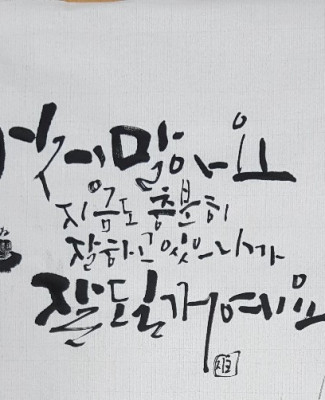 말아요
지금도 충분히
잘하고 있으니까
잘될거예요